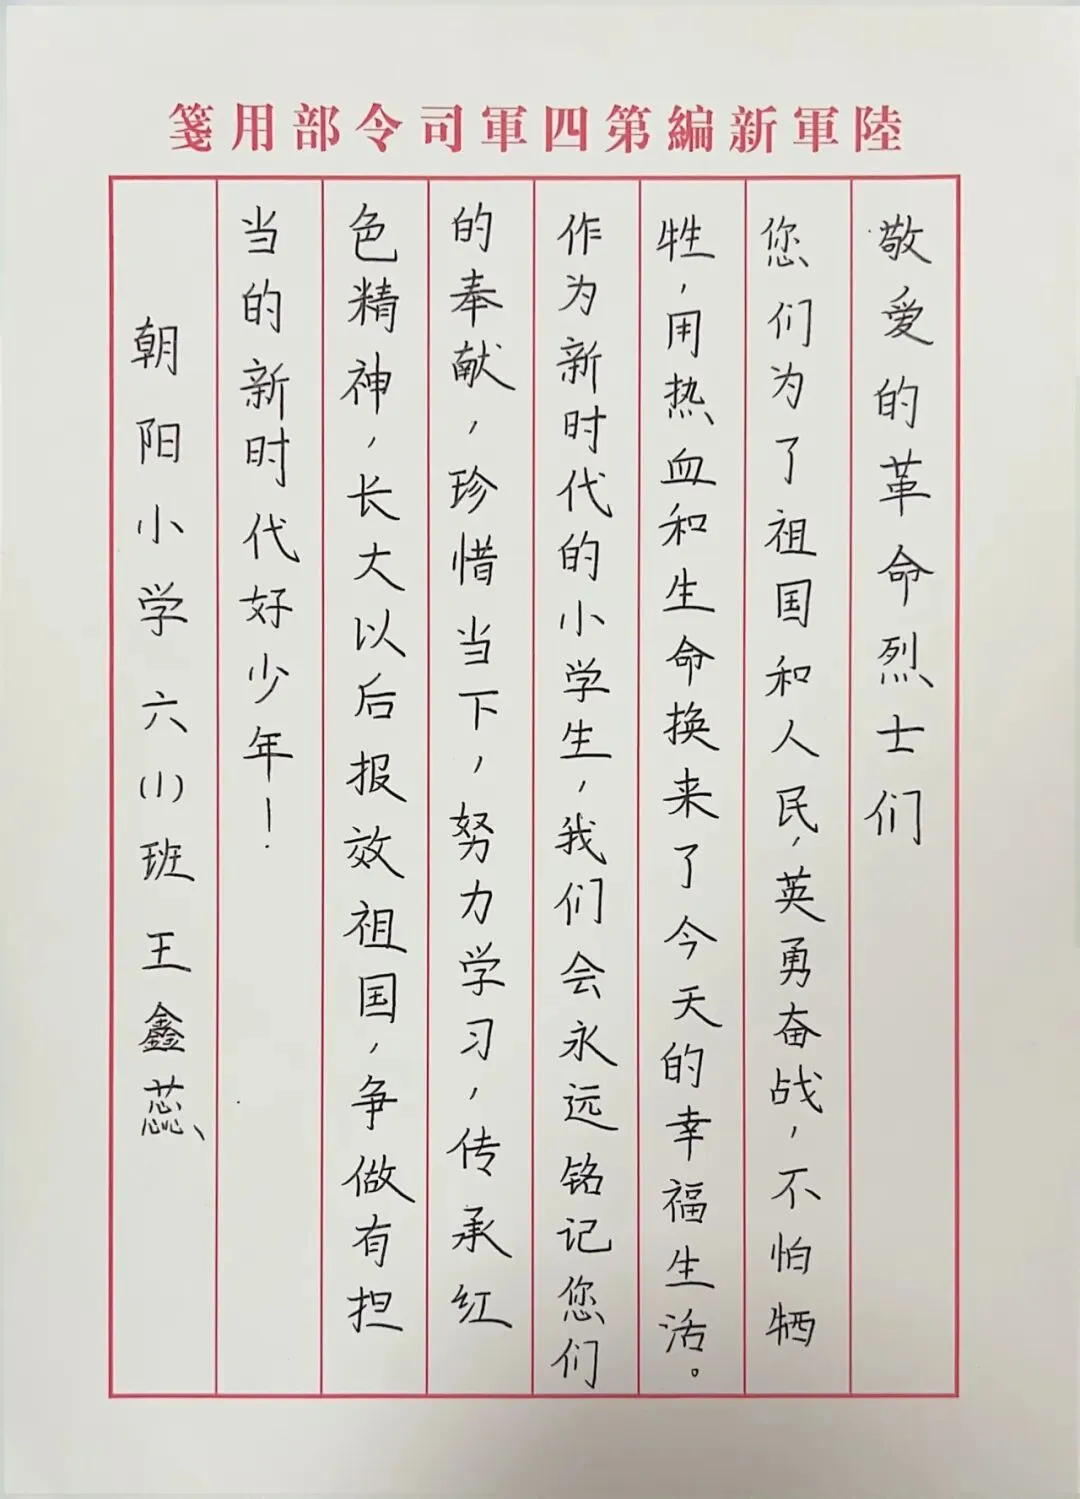 陸軍新編第四軍司令部用箋
敬爱的革命烈士们
您们为了祖国和人民，英勇奋战，不怕牺
牲，用热血和生命换来了今天的幸福生活。
作为新时代的小学生，我们会永远铭记您们
的奉献，珍惜当下，努力学习，传承红
色精神，长大以后报效祖国，争做有担
当的新时代好少年！
朝阳小学六(1)班王鑫蕊